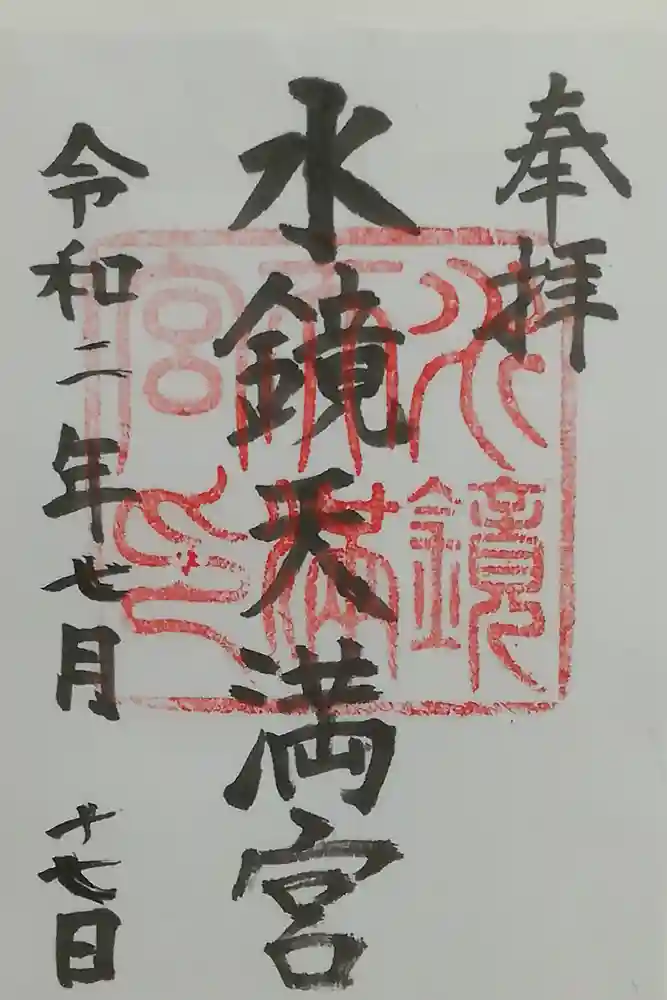 奉拝
水鏡天満宮
令和二年七月十七日
水鏡
天満
宮印